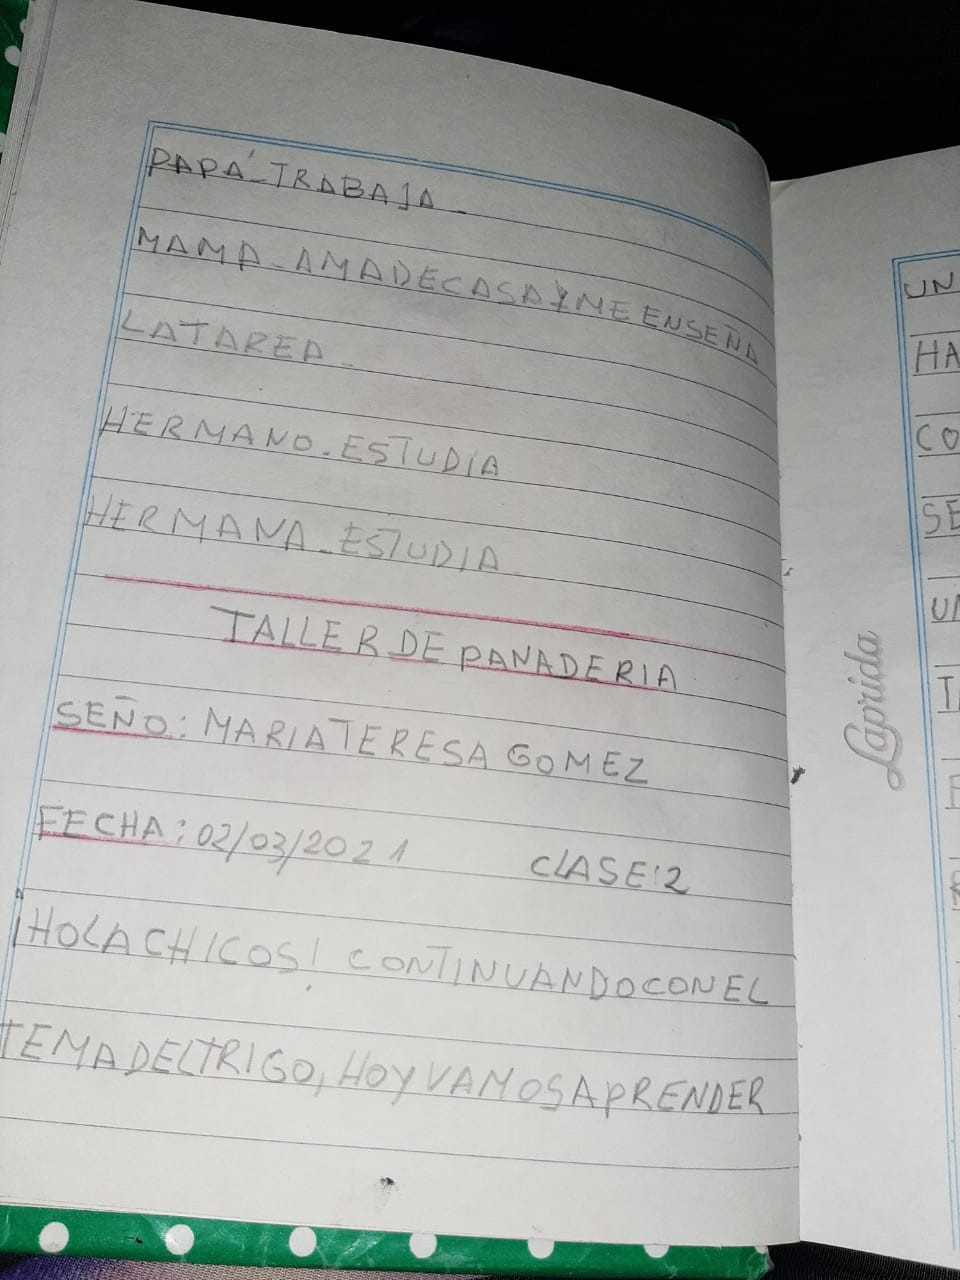 PAPÁ-TRABAJA-
MAMA-AMADECASAYMEENSEÑA
LATAREA-
HERMANO-ESTUDIA
HERMANA-ESTUDIA
TALLER DE PANADERIA
SEÑO: MARIATERESA GOMEZ
FECHA: 02/03/2021 ClASE:2
¡HOLACHICOS! CONTINUANDOCONEL
TEMADELTRIGO, HOYVAMOSAPRENDER
Laprida
UN
HA
CO
SE